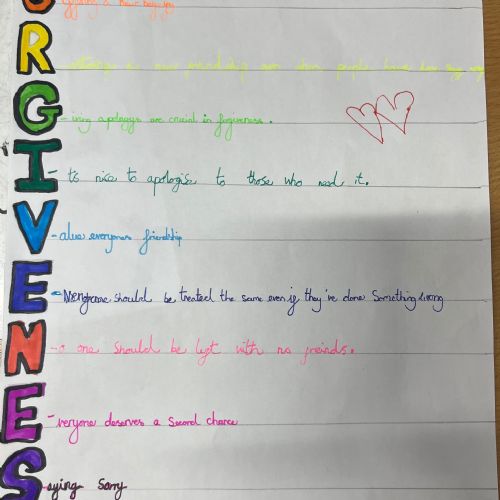 O a new
R - a new friendship even when people have
G - iving apologys are crucial in forgiveness.
I - t's nice to apologise to those who need it.
V - alue everyones friendship
E - should be treated the same even if they've done something wrong
N - o one should be left with no freinds.
E - veryone deserves a second chance
S aying Sorry